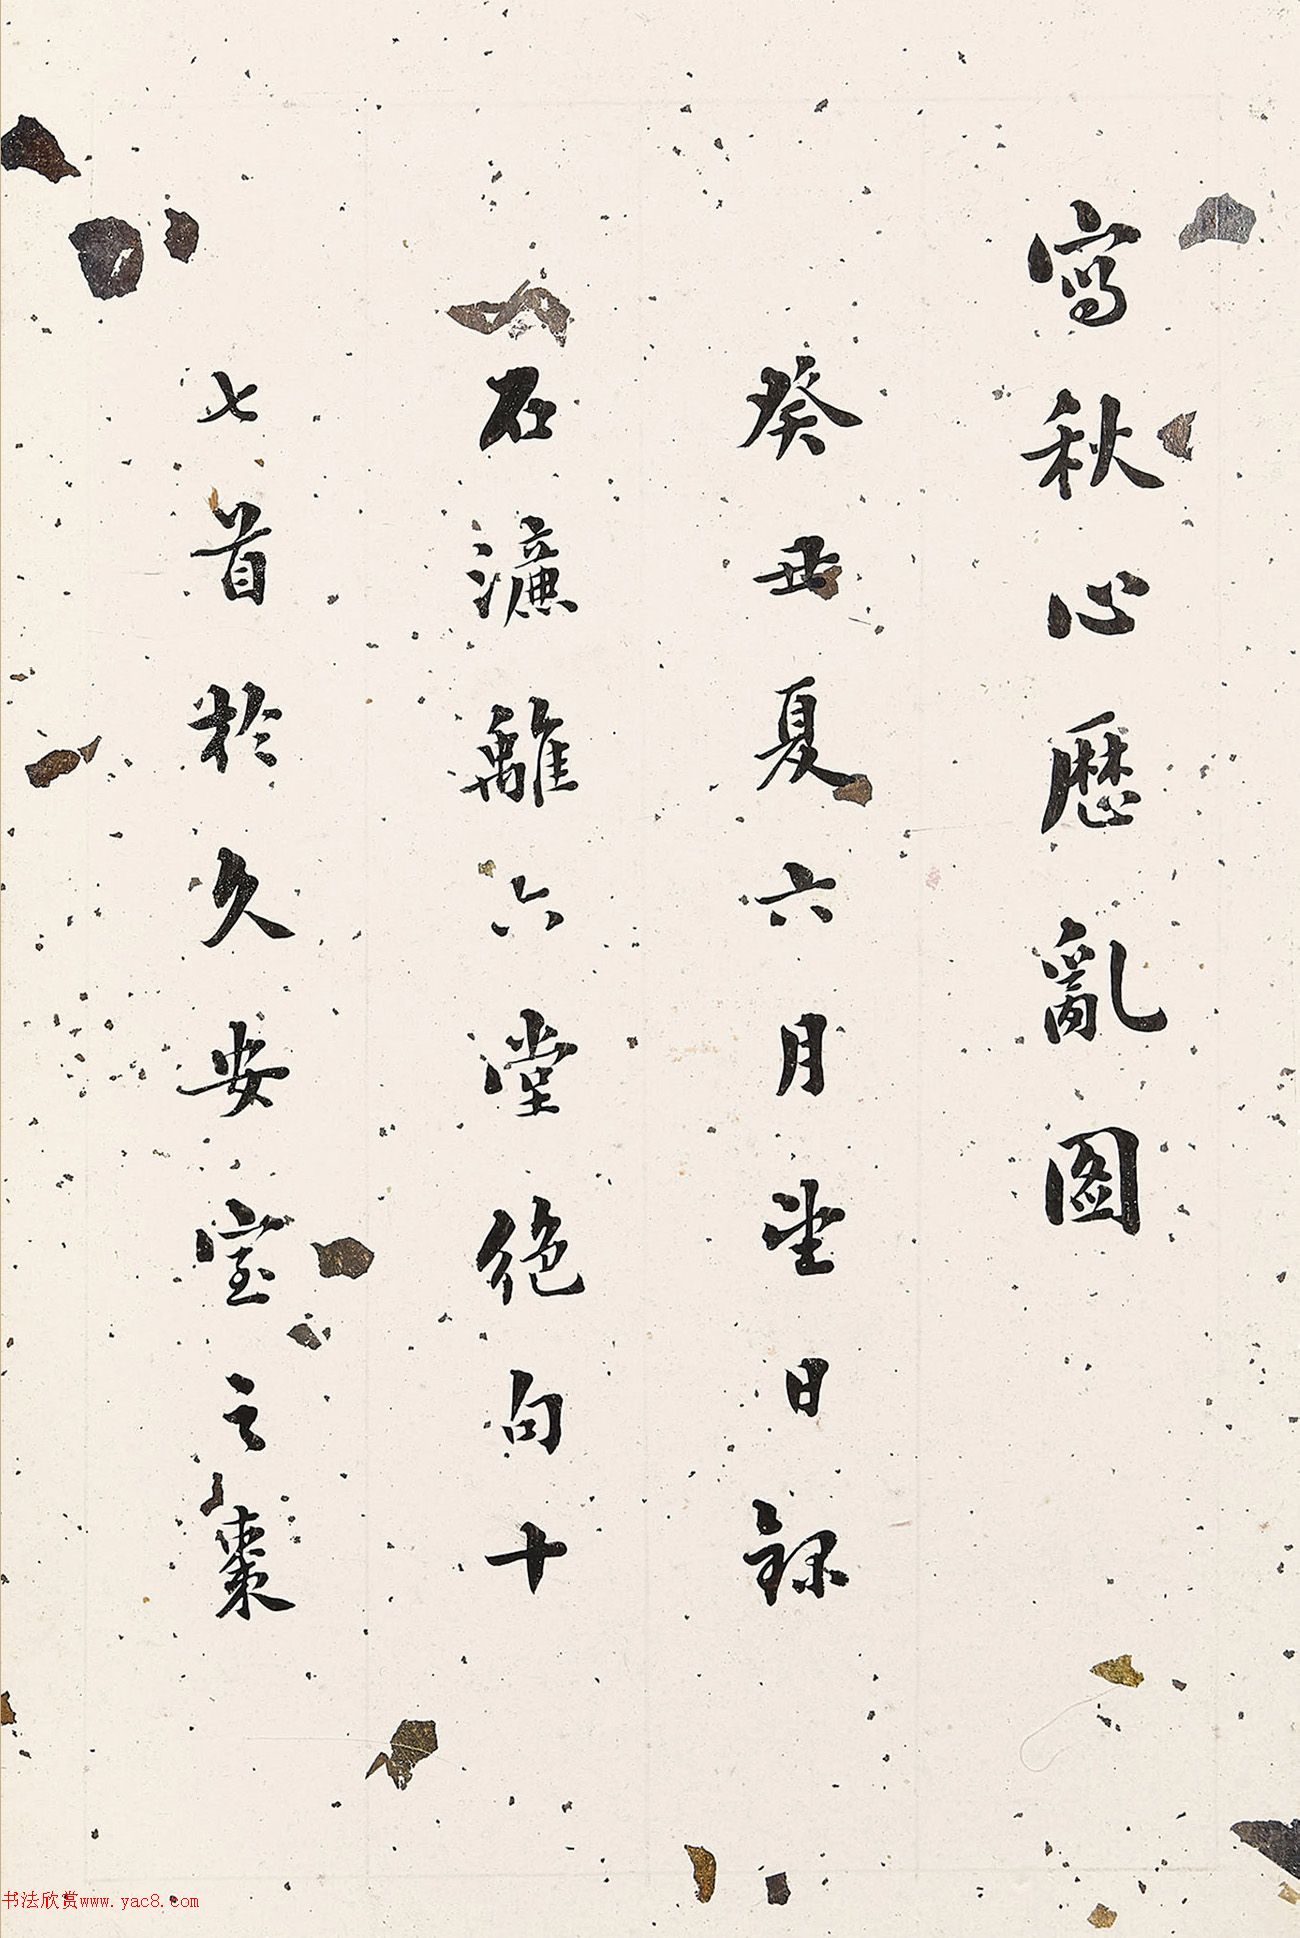 寫秋心歷亂圖
癸丑夏六月望日録
石濂離六堂絕句十
七首於久安室之東
书法欣赏www.yac8.com